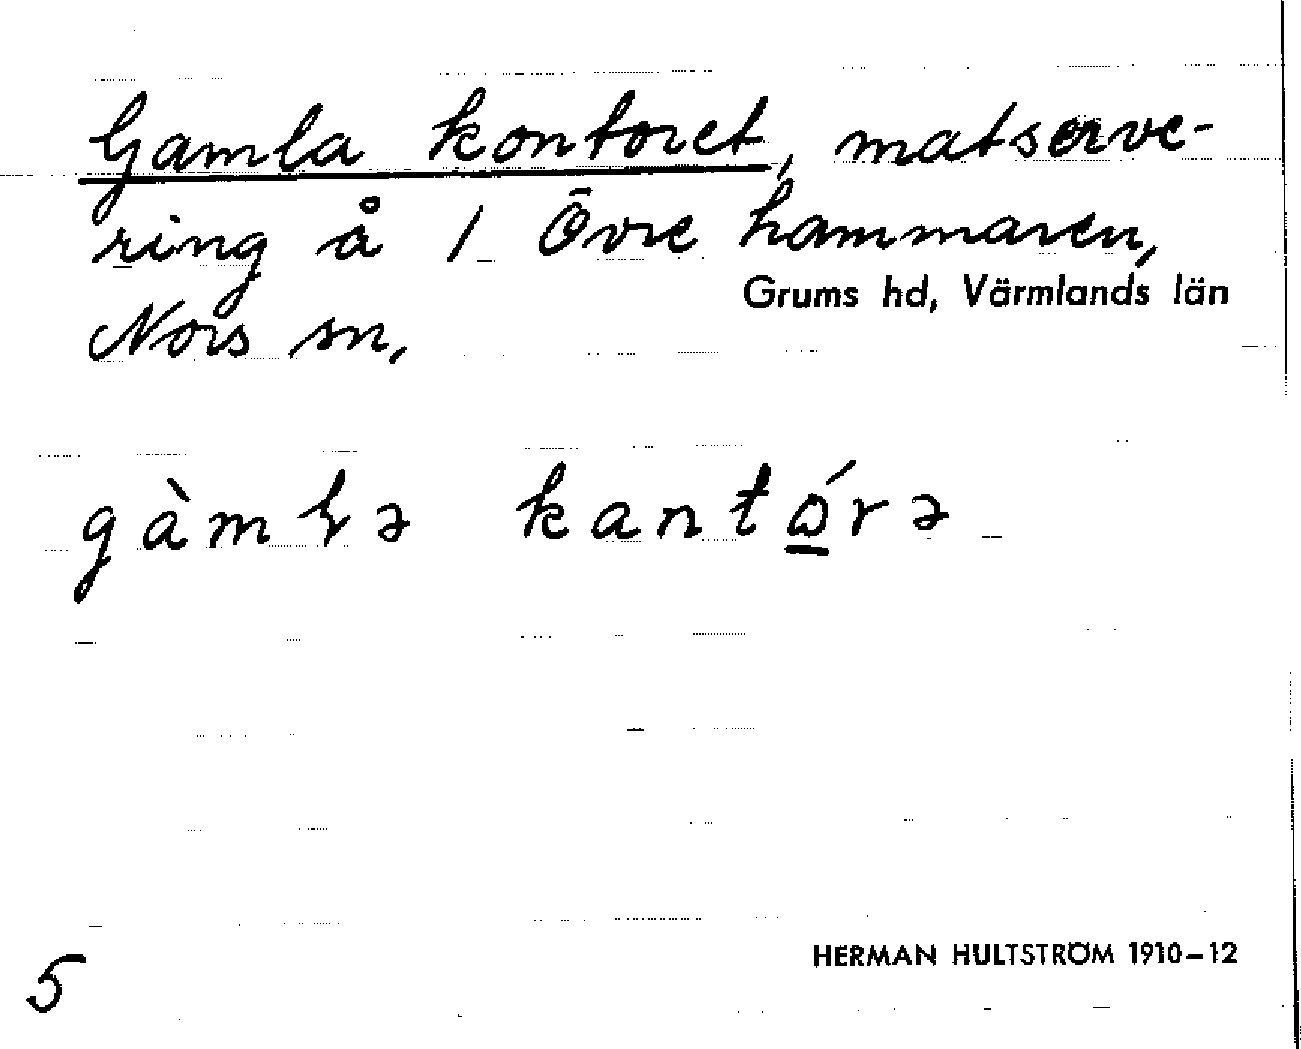 Gamla kontoret, matserve-
ring å 1 Övre hammaren,
Grums hd, Värmlands län
Nors sn,
gàmɫə kantǿrə
HERMAN HULTSTRÖM 1910–12
5